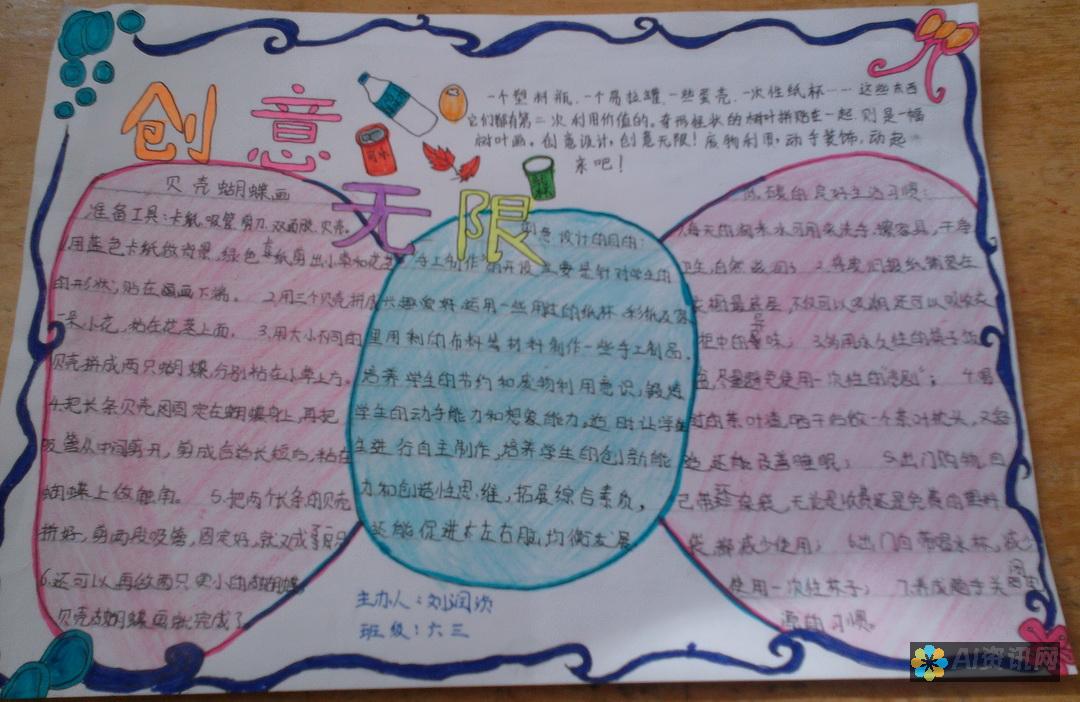 创意
无限
一个塑料瓶、一个易拉罐、一些蛋壳、一次性纸杯……这些东西
它们都有第二次利用价值的。奇形怪状的树叶拼贴在一起则是一幅
树叶画。创意设计,创意无限!废物利用,动手装饰,动起
来吧!
可乐
贝壳蝴蝶画
准备工具:卡纸、吸管、剪刀、双面胶、贝壳。
1.用蓝色卡纸做背景,绿色卡纸剪出小草和花茎
的形状,贴在画面下端。 2.用三个贝壳拼成
一朵小花,粘在花茎上面。 3.用大小不同的
贝壳拼成两只蝴蝶分别粘在小草上方。
4.把长条贝壳固定在蝴蝶身上,再把
吸管从中间剪开,剪成合适长短的,粘在
蝴蝶上做触角。 5.把两个长条的贝壳
拼好,剪两段吸管,固定好,就又成了
6.还可以再做两只更小的蝴蝶,
贝壳蝴蝶画就完成了
创意设计的目的:
手工制作的开设主要是针对学生的
兴趣爱好,运用一些用过的纸杯、彩纸及家
里用剩的布料等材料制作一些手工制品。
培养学生的节约和废物利用意识,锻炼
学生的动手能力和想象能力。适时让学
生进行自主制作,培养学生的创新能
力和创造性思维,拓展综合素质,
还能促进大左右脑均衡发展
低碳的良好生活习惯:
1.每天的淘米水可用来洗手、擦家具,干净
卫生,自然滋润; 2.将废旧报纸铺垫在
衣橱最底层,不仅可以吸潮,还可以吸收衣
柜中的异味; 3.尚用永久性的筷子饭
盒,尽量避免使用一次性的
过的茶叶渣,晒干后做一个茶叶枕头,又舒
适,还能改善睡眠; 5.出门购物,自
己带环保袋,无论是收费还是免费的塑料
袋,都减少使用; 6.出门自带喝水杯,减少
使用一次性杯子; 7.养成随手关闭电
源的习惯。
主办人:刘润
班级:六三
AI资讯网